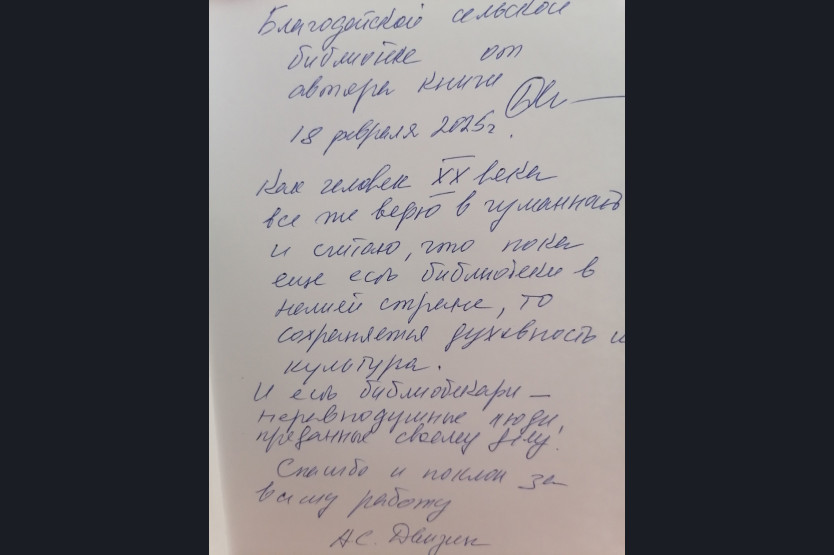 Благодатской сельской
библиотеке от
автора книги
18 февраля 2025г.
Как человек XX века
все же верю в гуманность
и считаю, что пока
еще есть библиотеки в
нашей стране, то
сохраняется духовность и
культура.
И есть библиотекари –
неравнодушные люди,
преданные своему делу.
Спасибо и поклон за
вашу работу
А.С.